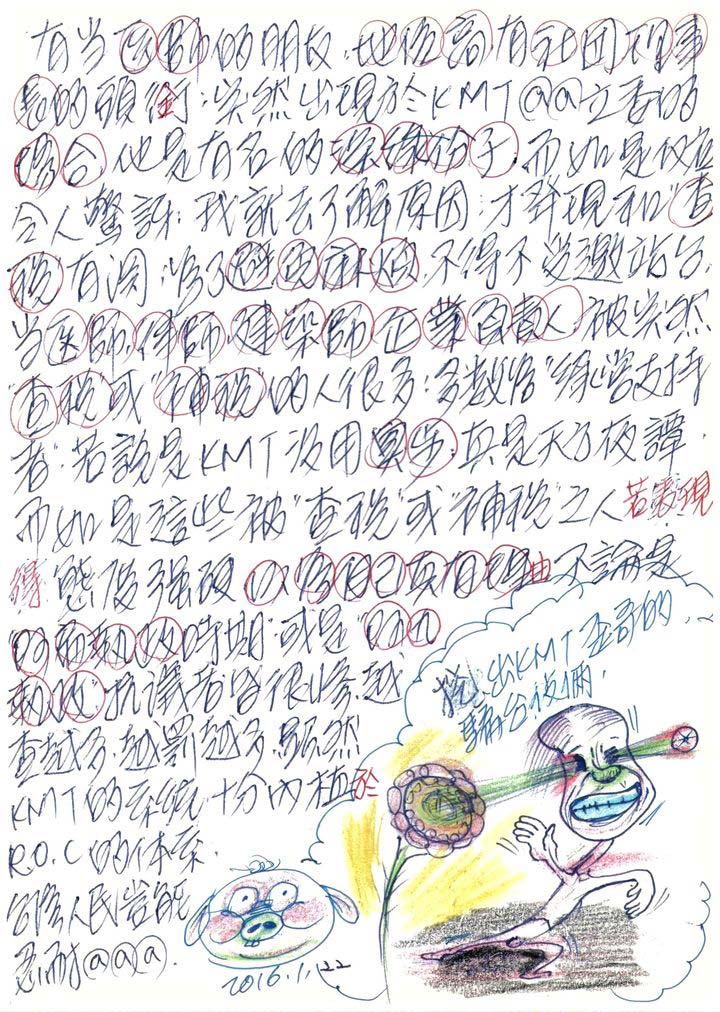 有当医師的朋友.地位高.有社团理事
長的頭銜:突然出現於KMT@@立委的
場合.他是有名的深綠份子.而如是
令人驚訝:我就去了解原因:才發現和"查
稅"有関:為了 不得不受邀站台.
当医師.律師.建築師.企業負責人.被突然
"查稅"或"補稅"的人很多:多数恰"綠營支持
者".若說是KMT没用奧步.真是天方夜譚.
而如是這些被"查稅"或"補稅"之人若表現
得態度强硬以為自己真有理由不論是
"阿扁執政時期"或是"阿九
執政"抗議者皆很慘.越
查越多.越罰越多.顯然
KMT的系統十分内植於
R.O.C的体系.
台灣人民豈能
忍耐@@@.
出KMT 歪哥的
騙台伎倆.
2016.1.22